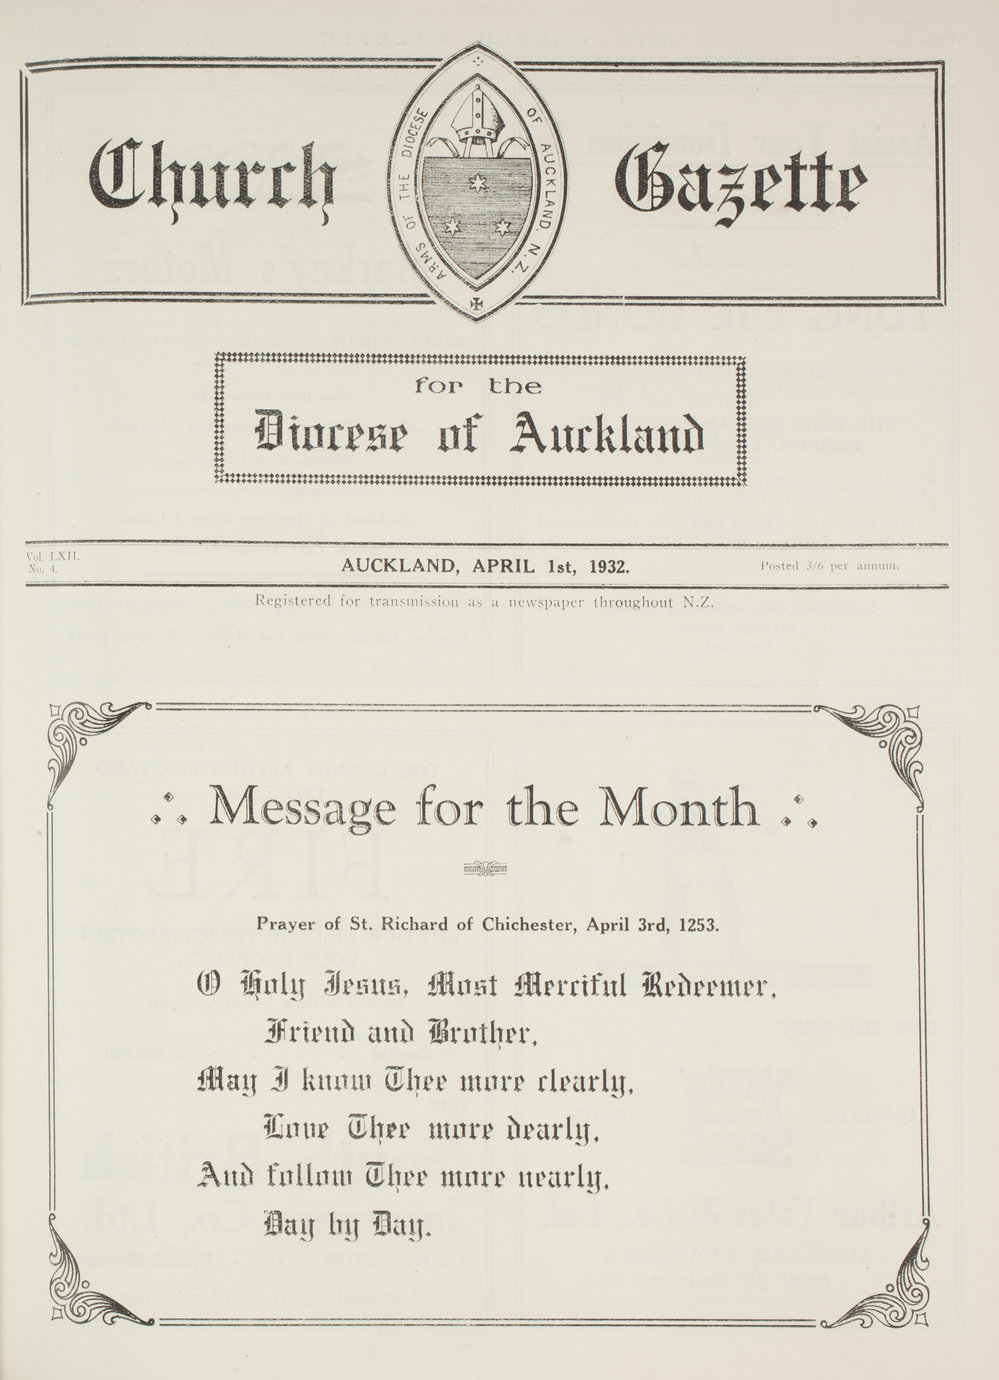 Church Gazette
ARMS OF THE DIOCESE OF AUCKLAND. N.Z.
for the
Diocese of Auckland
Vol. LXII.
No. 4.
AUCKLAND, APRIL 1st, 1932.
Posted 3/6 per annum.
Registered for transmission as a newspaper throughout N.Z.
Message for the Month
Prayer of St. Richard of Chichester, April 3rd, 1253.
O Holy Jesus, Most Merciful Redeemer,
Friend and Brother,
May I know Thee more clearly,
Love Thee more dearly,
And follow Thee more nearly,
Day by Day.